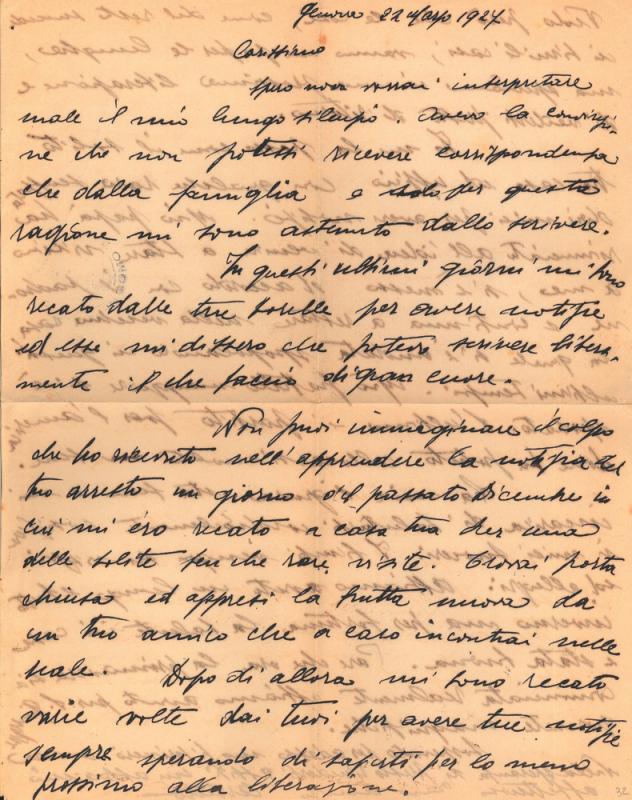 Genova 22 Marzo 1927
Carissimo
spero non vorrai interpretare
male il mio lungo silenzio. Avevo la convinzio-
ne che non potessi ricevere corrispondenza
che dalla famiglia e solo per questa
ragione mi sono astenuto dallo scrivere.
In questi ultimi giorni mi sono
recato dalle tue sorelle per avere notizie
ed esse mi dissero che potevo scrivere libera-
mente il che faccio di gran cuore.
Non puoi immaginare il colpo
che ho ricevuto nell'apprendere la notizia del
tuo arresto un giorno del passato Dicembre in
cui mi ero recato a casa tua per una
delle solite sen che rare visite. Trovai porta
chiusa ed appresi la brutta nuova da
un tuo amico che a caso incontrai nelle
scale. Dopo di allora mi sono recato
varie volte dai tuoi per avere tue notizie
sempre sperando di saperti per lo meno
prossimo alla liberazione.
32